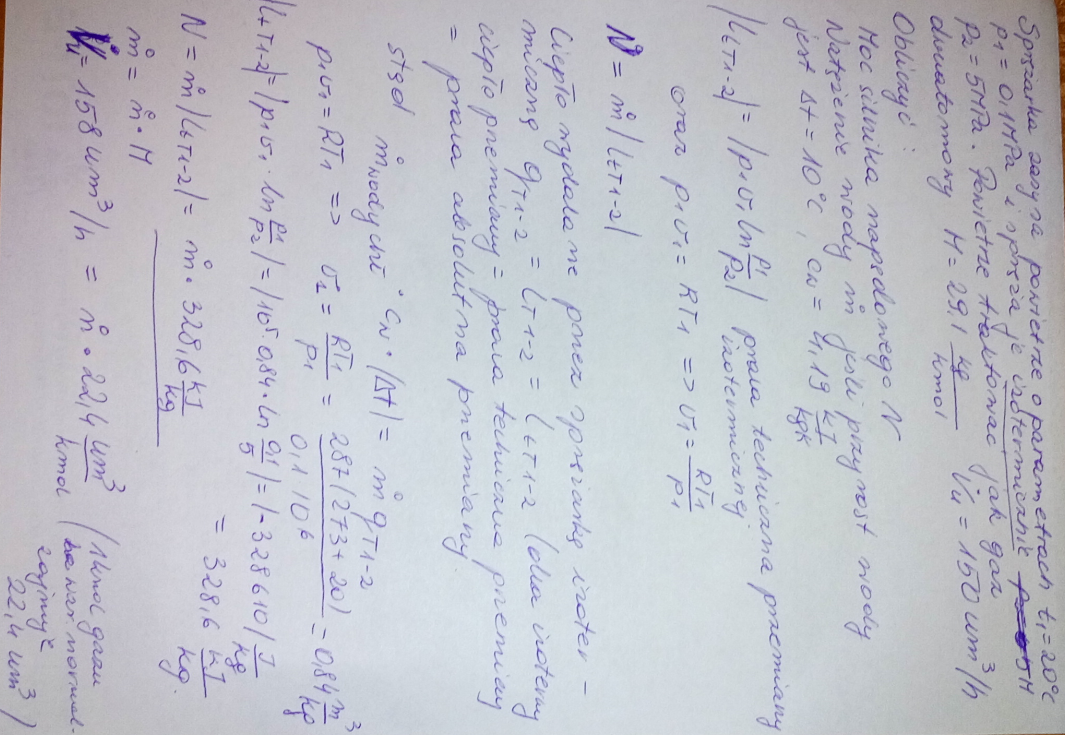 Sprężarka zasysa powietrze o parametrach t₁ = 20°C
p₁ = 0,1MPa i spręża je izotermicznie
p₂ = 5MPa. Powietrze traktować jak gaz
dwuatomowy M = 29,1 kg/kmol V̇u = 150 um³/h
Obliczyć:
Moc silnika napędowego N
Natężenie wody ṁ jeśli przyrost wody
jest Δt = 10°C, cw = 4,19 kJ/kgK
|lt T1-2| = |p₁v₁ ln p₁/p₂| praca techniczna przemiany
izotermicznej
oraz p₁v₁ = RT₁ => v₁ = RT₁/p₁
N = ṁ |lt T1-2|
Ciepło wydalane przez sprężarkę izoter-
miczną qT1-2 = lT1-2 = lt T1-2 (dla izotermy
ciepło przemiany = praca techniczna przemiany
= praca absolutna przemiany
stąd ṁwody chł · cw · |Δt| = ṁ qT1-2
p₁v₁ = RT₁ => v₁ = RT₁/p₁ = 287(273+20)/0,1 10⁶ = 0,84 m³/kg
|lt T1-2| = |p₁v₁ · ln p₁/p₂| = |10⁵·0,84·ln 0,1/5| = |-328610| J/kg
= 328,6 kJ/kg
N = ṁ |lt T1-2| = ṁ · 328,6 kJ/kg
ṁ = ṅ · M
V̇u = 158 um³/h = ṅ · 22,4 um³/kmol (1kmol gazu
warunki normal-
zajmuje
22,4 um³)